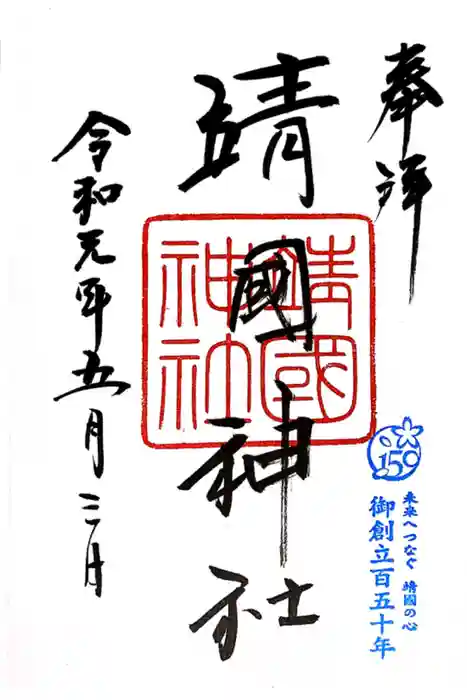 奉拝
靖國神社
靖國
神社
令和元年五月三日
150
未来へつなぐ 靖國の心
御創立百五十年